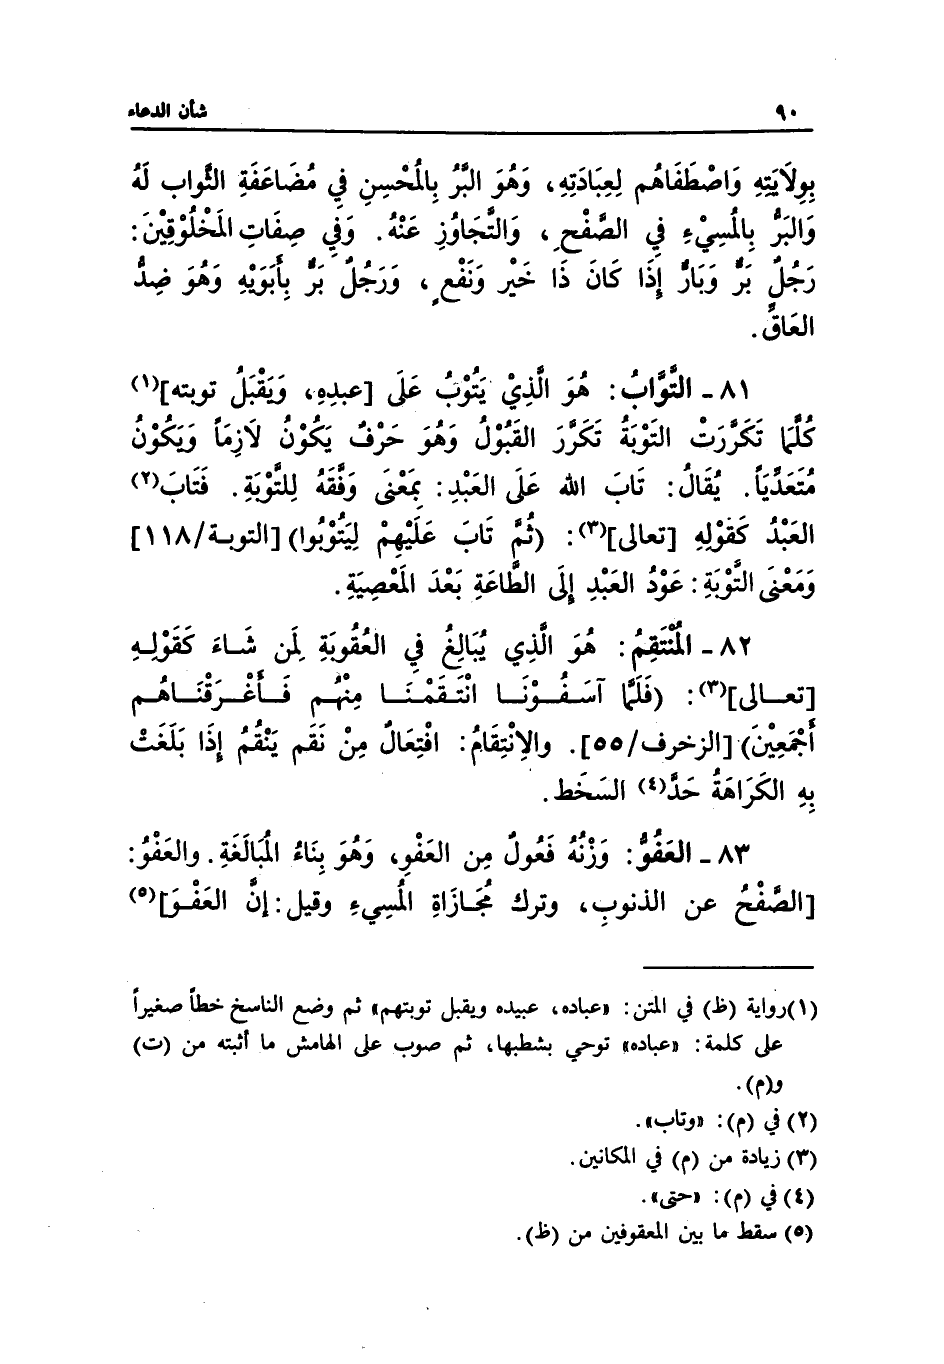 ٩٠ شأن الدعاء
بِوِلَايَتِهِ وَاصْطَفَاهُم لِعِبَادَتِهِ، وَهُوَ البَّرُ بِالمُحْسِنِ فِي مُضَاعَفَةِ الثَّوابِ لَهُ
وَالبَرُّ بِالمُسِيْءِ فِي الصَّفْحِ، وَالتَّجَاوُزِ عَنْهُ. وَفِي صِفَاتِ المَخْلُوْقِيْنَ:
رَجُلٌ بَرٌّ وَبَارٌّ إِذَا كَانَ ذَا خَيْرٍ وَنَفْعٍ، وَرَجُلٌ بَرٌّ بِأَبَوَيْهِ وَهُوَ ضِدُّ
العَاقِّ.
٨١ ـ التَّوَّابُ: هُوَ الَّذِيْ يَتُوْبُ عَلَى [عبدِهِ، وَيَقْبَلُ توبته](١)
كُلَّمَا تَكَرَّرَتْ التَوْبَةُ تَكَرَّرَ القَبُوْلُ وَهُوَ حَرْفٌ يَكُوْنُ لَازِمَاً وَيَكُوْنُ
مُتَعَدِّيَاً. يُقَالُ: تَابَ الله عَلَى العَبْدِ: بِمَعْنَى وَفَّقَهُ لِلتَّوْبَةِ. فَتَابَ(٢)
العَبْدُ كَقَوْلِهِ [تعالى](٣): (ثُمَّ تَابَ عَلَيْهِمْ لِيَتُوْبُوا) [التوبة/١١٨]
وَمَعْنَى التَّوْبَةِ: عَوْدُ العَبْدِ إِلَى الطَّاعَةِ بَعْدَ المَعْصِيَةِ.
٨٢ ـ المُنْتَقِمُ: هُوَ الَّذِي يُبَالِغُ فِي العُقُوبَةِ لِمَن شَاءَ كَقَوْلِهِ
[تعالى](٣): (فَلَمَّا آسَفُوْنَا انْتَقَمْنَا مِنْهُم فَأَغْرَقْنَاهُم
أَجْمَعِيْنَ) [الزخرف/٥٥]. والِانْتِقَامُ: افْتِعَالٌ مِنْ نَقَم يَنْقُمُ إِذَا بَلَغَتْ
بِهِ الكَرَاهَةُ حَدَّ(٤) السَخَط.
٨٣ ـ العَفُوُّ: وَزْنُهُ فَعُولٌ مِن العَفْوِ، وَهُوَ بِنَاءُ المُبَالَغَةِ. والعَفْوُ:
[الصَّفْحُ عن الذنوبِ، وتركُ مُجَازَاةِ المُسِيءِ وقيل: إنَّ العَفْوَ](٥)
(١) رواية (ظ) في المتن: «عباده، عبيده ويقبل توبتهم» ثم وضع الناسخ خطاً صغيراً
على كلمة: «عباده» توحي بشطبها، ثم صوب على الهامش ما أثبته من (ت)
و(م).
(٢) في (م): «وتاب».
(٣) زيادة من (م) في المكانين.
(٤) في (م): «حتى».
(٥) سقط ما بين المعقوفين من (ظ).